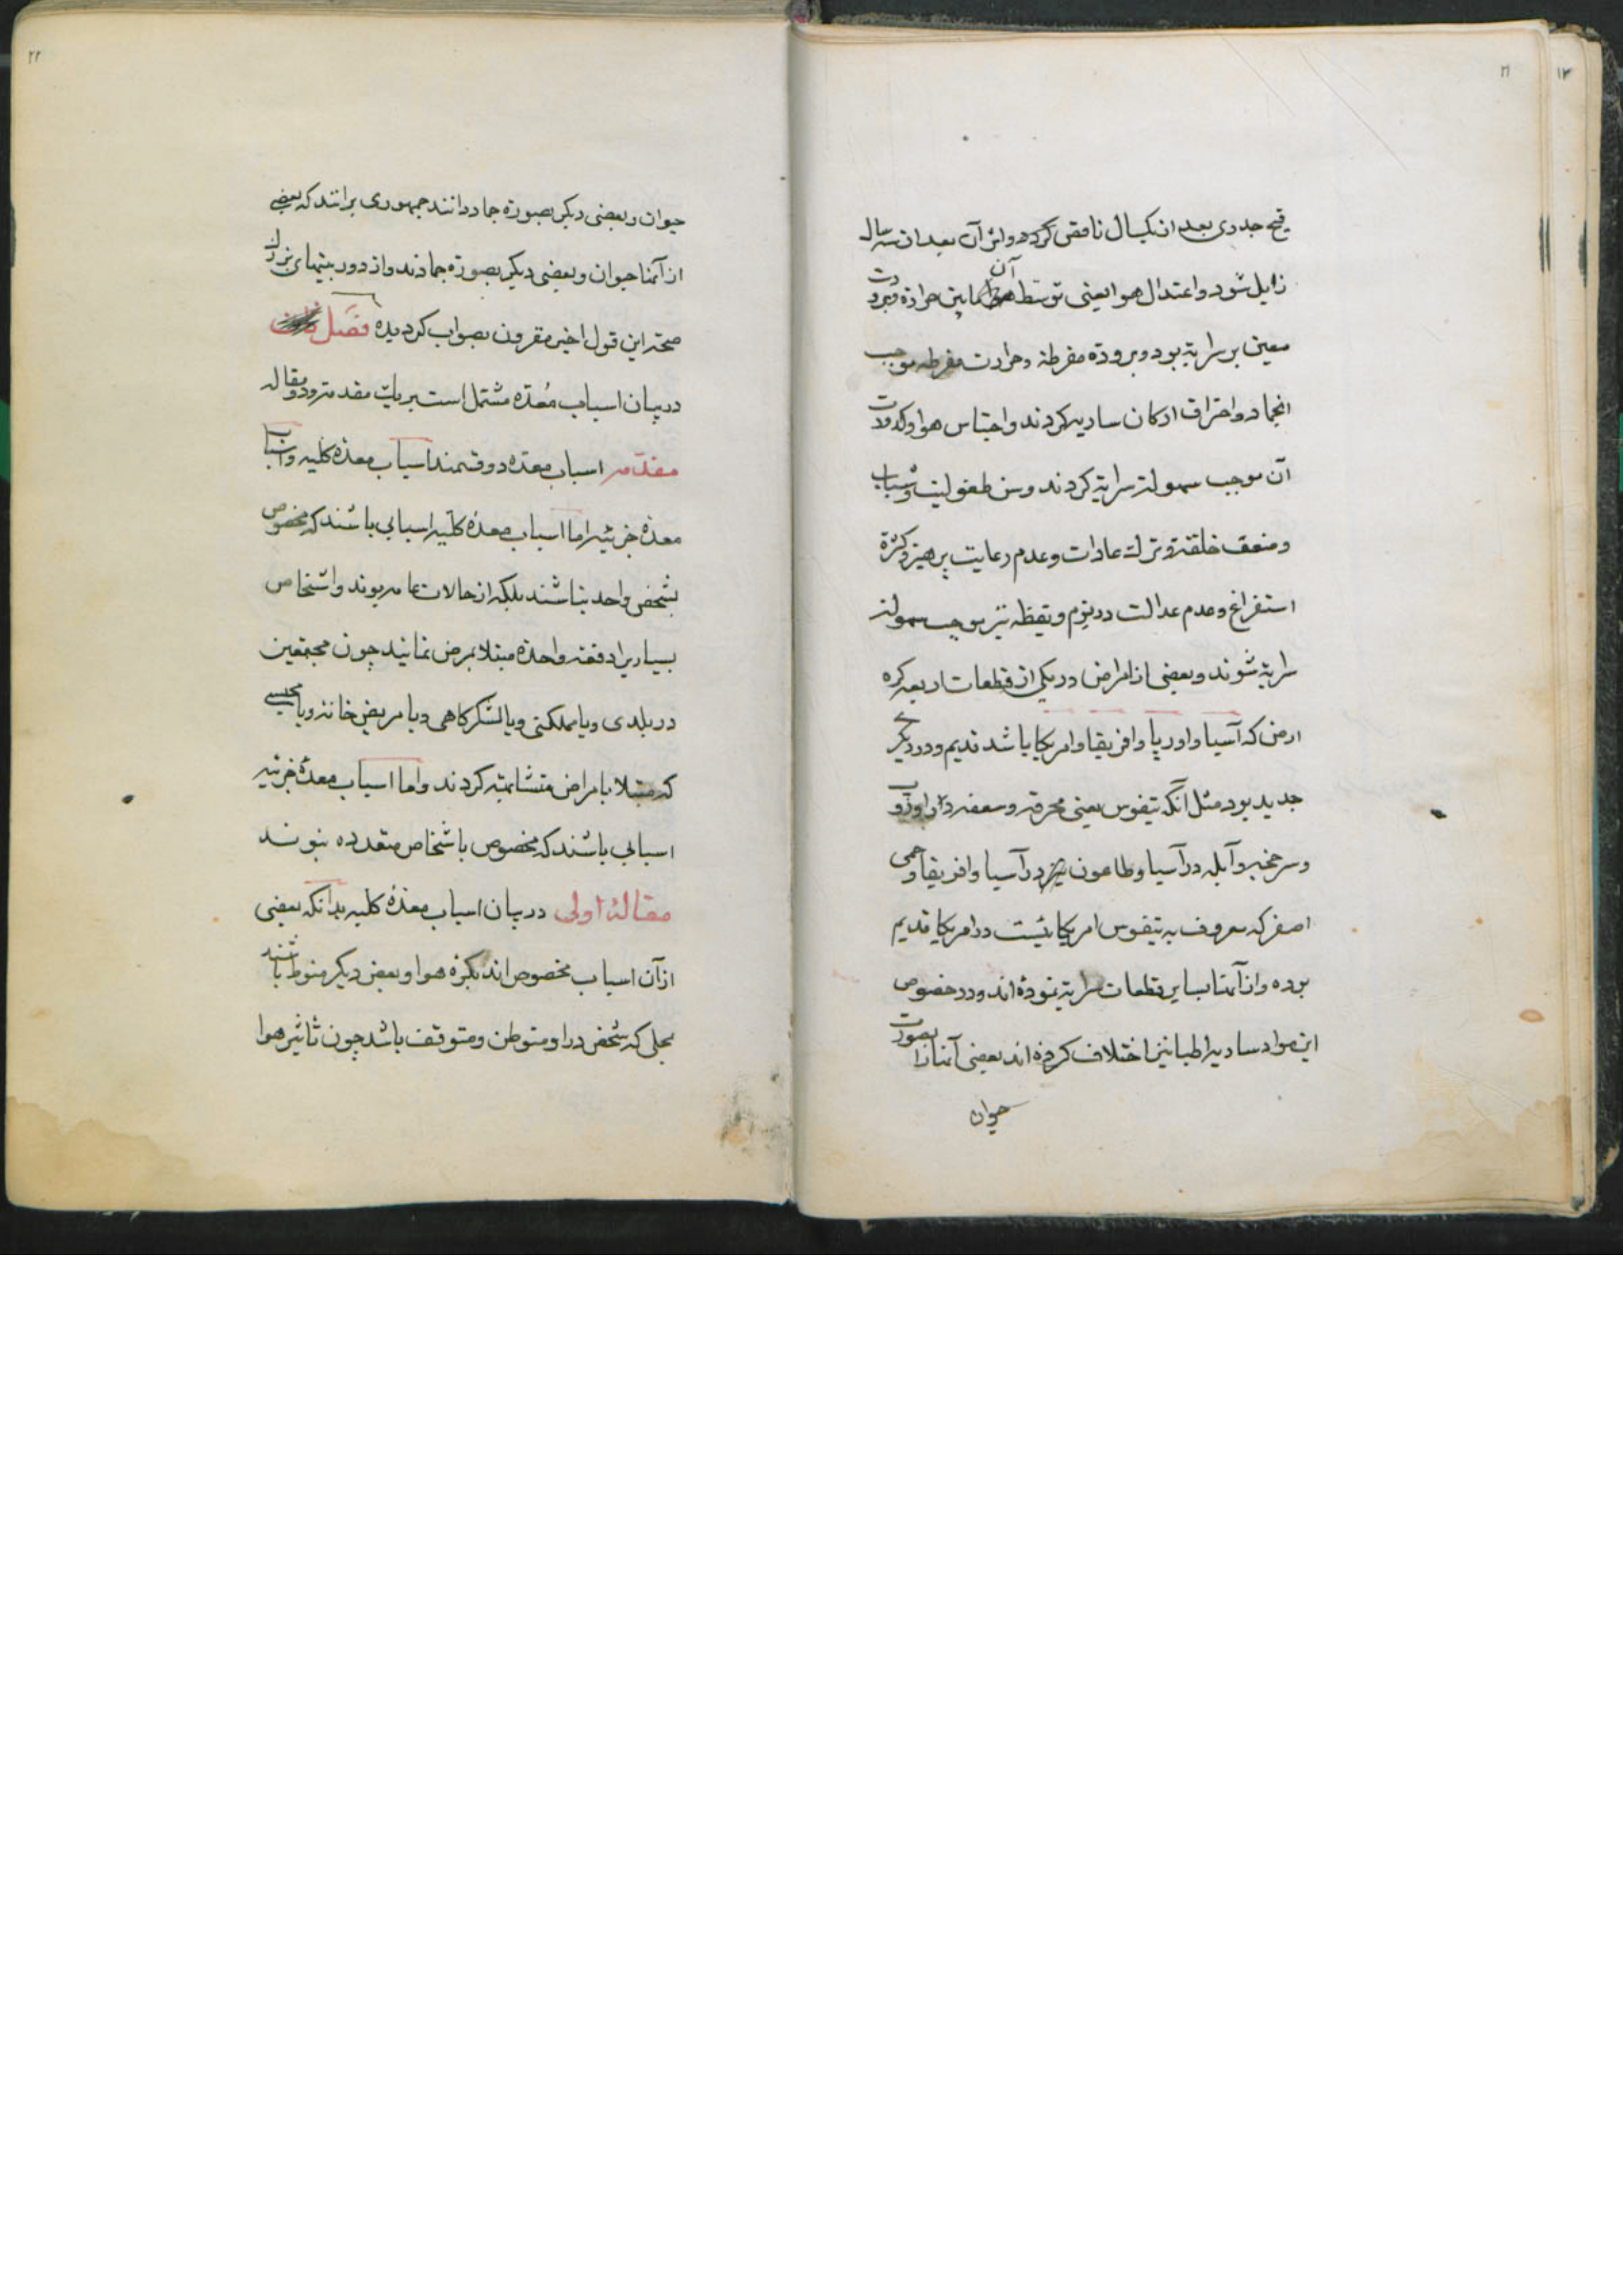 ۲۱
۱۲
قیح جدری بعد از یکسال ناقص کردد واثر آن بعد از سه سال
زایل شود واعتدال هوا یعنی توسط آن مابین حرارة وبرودت
معین بر سرایة بود وبرودة مفرطه وحرارت مفرطه موجب
انجماد واحتراق ارکان ساریه کردند واحتباس هوا وکدورت
آن موجب سهولة سرایة کردند وسن طفولیت وشباب
وضعف خلقة وترك عادات وعدم رعایت پرهیز وکثرة
استفراغ وعدم عدالت در نوم ویقظه نیز موجب سهولة
سرایة شوند وبعضی از امراض در یکی از قطعات اربعه کره
ارض که آسیا واورپا وافریقا وامریکا باشد قدیم ودر دیکر
جدید بود مثل آنکه تیفوس یعنی محرقه وسعفه در اروپ
وسرخجه وآبله در آسیا وطاعون در آسیا وافریقا وحمی
اصفر که معروف به تیفوس امریکائیست در امریکا قدیم
بوده واز آنها بسایر قطعات سرایة نموده اند ودر خصوص
این مواد ساریه اطبا نیز اختلاف کرده اند بعضی آنها را بصورت
حیوان
۲۲
حیوان وبعضی دیکر بصورة جماد دانند جمهوری برانند که بعضی
از آنها حیوان وبعضی دیکر بصورة جمادند واز دوربینهای بزرك
صحة این قول اخیر مقرون بصواب کردیده فصل
در بیان اسباب مُعدّه مشتمل است بر یك مقدمه ودو مقاله
مقدّمه اسباب معدّه دو قسمند اسباب معدّه کلیه واسباب
معدّه جزئیه اما اسباب معدّه کلّیه اسبابی باشند که مخصوص
بشخص واحد نباشند بلکه از حالات عامه بوند واشخاص
بسیاریرا دفعة واحدة مبتلا بمرض نمایند چون مجتمعین
در بلدی ویا مملکتی ویا لشکرکاهی ویا مریض خانه ویا محبسی
که مبتلا بامراض متشابهة کردند واما اسباب معدّهٔ جزئیه
اسبابی باشند که مخصوص باشخاص متعدده نبوند
مقالهٔ اولی در بیان اسباب معدّهٔ کلیه بدانکه بعضی
از آن اسباب مخصوص اند بکرهٔ هوا وبعض دیکر منوط باشند
بمحلی که شخص در او متوطن ومتوقف باشد چون تاثیر هوا